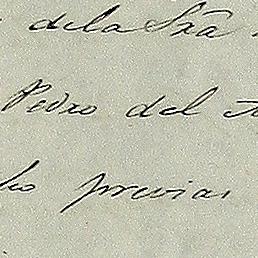 dela Sra
Pedro del
previas